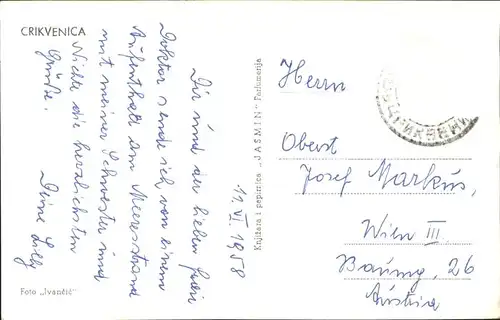 CRIKVENICA
11. VI. 1958
Dir und der lieben Frau
Doktor sende ich von einem
Aufenthalt am Meeresstrand
mit meiner Schwester und
Nichte die herzlichsten
Grüße.
Deine Lilly
Foto „Ivančić“
Knjižara i papirnica „JASMIN“ Parfumerija
Herrn
Oberst
Josef Markus,
Wien III.
Baumg. 26
Austria